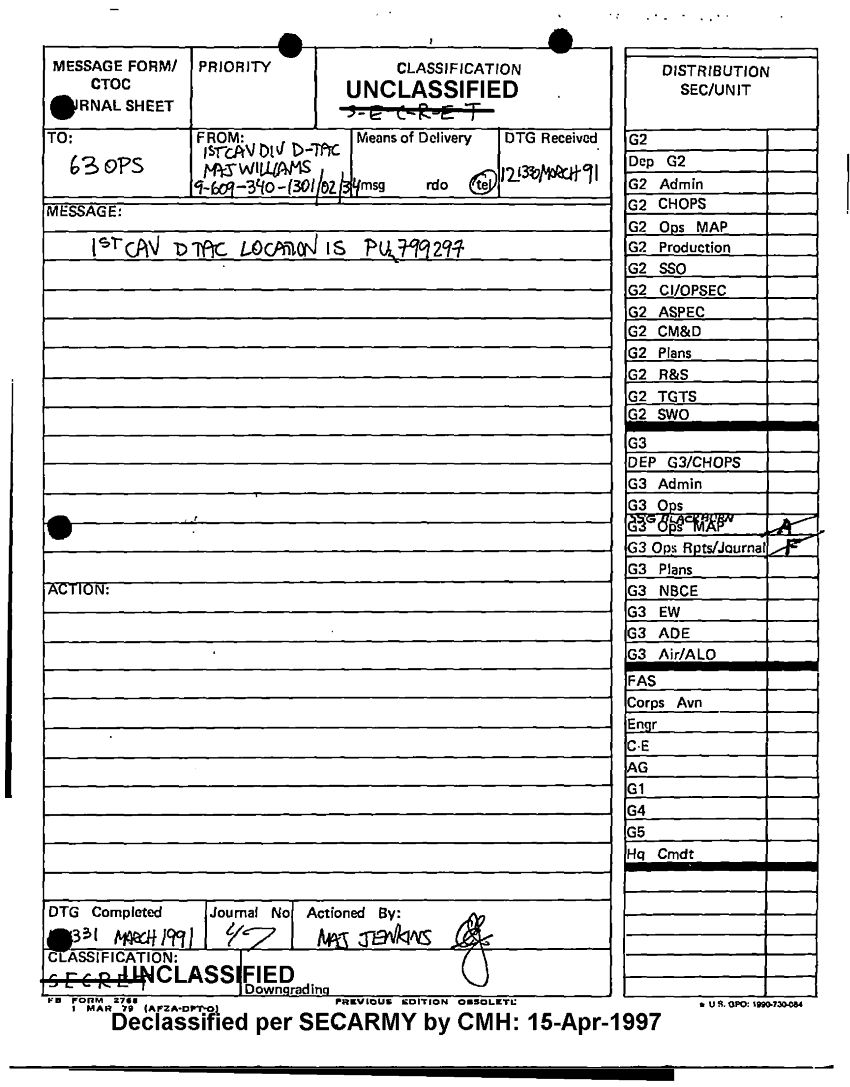 MESSAGE FORM/
CTOC
RNAL SHEET
PRIORITY
CLASSIFICATION
UNCLASSIFIED
S-E-C-R-E-T
TO:
63 OPS
FROM:
1ST CAV DIV D-TAC
MAJ WILLIAMS
9-609-340-1301/02/34
Means of Delivery
msg rdo tel
DTG Received
121330 MARCH 91
MESSAGE:
1ST CAV D TAC LOCATION IS PU 799297
ACTION:
DTG Completed
331 MARCH 1991
Journal No
47
Actioned By:
MAJ JENKINS
CLASSIFICATION:
SECRET UNCLASSIFIED
Downgrading
FB FORM 2768
1 MAR 79 (AFZA-DPT-O)
PREVIOUS EDITION OBSOLETE
DISTRIBUTION
SEC/UNIT
G2
Dep G2
G2 Admin
G2 CHOPS
G2 Ops MAP
G2 Production
G2 SSO
G2 CI/OPSEC
G2 ASPEC
G2 CM&D
G2 Plans
G2 R&S
G2 TGTS
G2 SWO
G3
DEP G3/CHOPS
G3 Admin
G3 Ops
SSG BLACKBURN
G3 Ops MAP A
G3 Ops Rpts/Journal F
G3 Plans
G3 NBCE
G3 EW
G3 ADE
G3 Air/ALO
FAS
Corps Avn
Engr
C-E
AG
G1
G4
G5
Hq Cmdt
U.S. GPO: 1990-730-084
Declassified per SECARMY by CMH: 15-Apr-1997